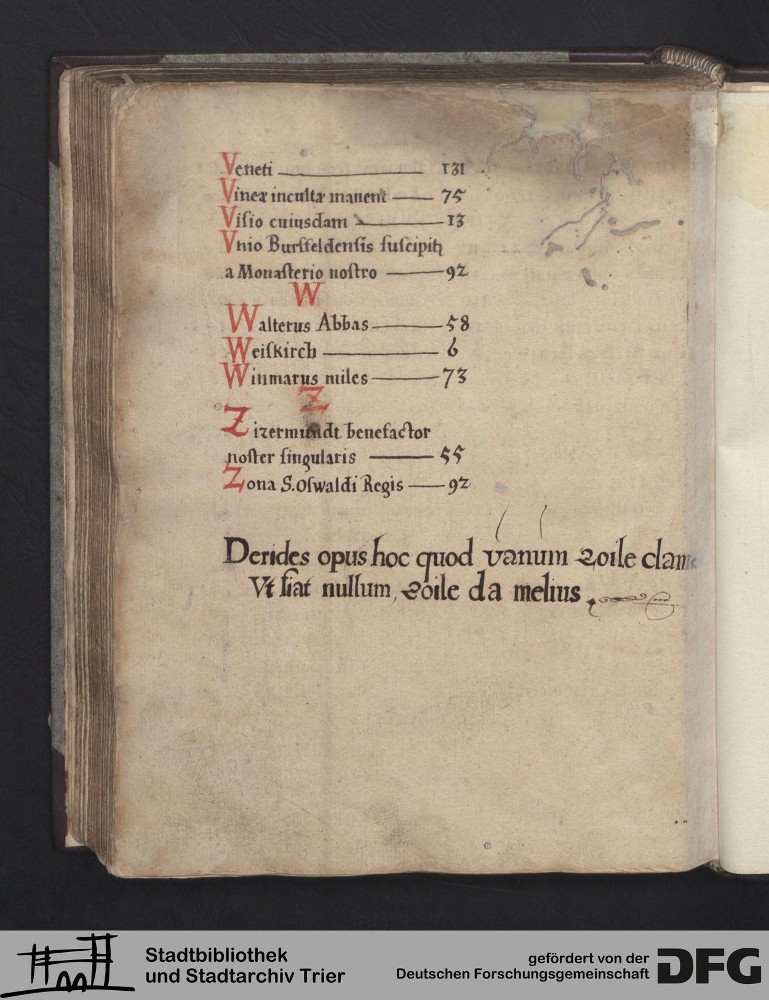 Veneti 131
Vineæ incultæ manent 75
Visio cuiusdam 13
Vnio Bursfeldensis suscipitꝫ
a Monasterio nostro 92
W
Walterus Abbas 58
Weiskirch 6
Winmarus miles 73
Z
Zizermundt benefactor
noster singularis 55
Zona S. Oswaldi Regis 92
Derides opus hoc quod vanum Zoile
Vt fiat nullum, Zoile da melius.
Stadtbibliothek
und Stadtarchiv Trier
gefördert von der
Deutschen Forschungsgemeinschaft
DFG